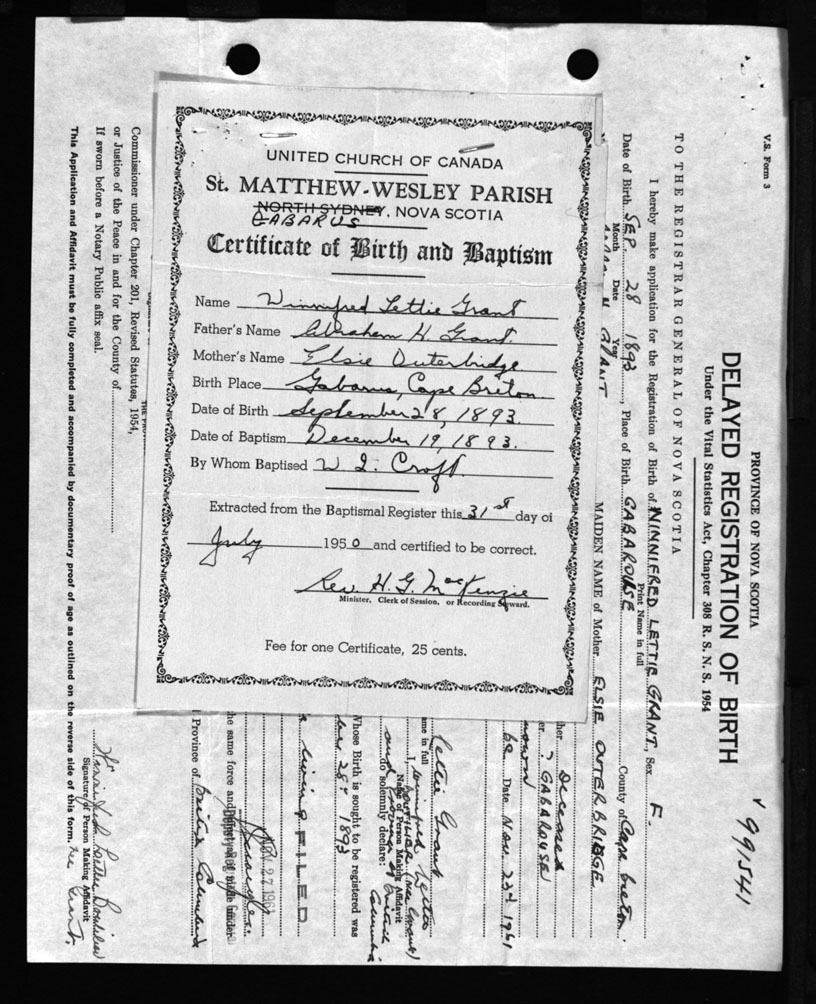 UNITED CHURCH OF CANADA
St. MATTHEW-WESLEY PARISH
NORTH SYDNEY, NOVA SCOTIA
GABARUS
Certificate of Birth and Baptism
Name Winnifred Lettie Grant
Father's Name Abraham H. Grant.
Mother's Name Elsie Outerbridge
Birth Place Gabarus, Cape Breton
Date of Birth September 28, 1893.
Date of Baptism December 19, 1893.
By Whom Baptised W I. Croft.
Extracted from the Baptismal Register this 31st day of
July 1950 and certified to be correct.
Rev. H. G. MacKenzie
Minister, Clerk of Session, or Recording Steward.
Fee for one Certificate, 25 cents.
V.S. Form 3
PROVINCE OF NOVA SCOTIA
991541
DELAYED REGISTRATION OF BIRTH
Under the Vital Statistics Act, Chapter 308 R. S. N. S. 1954
TO THE REGISTRAR GENERAL OF NOVA SCOTIA
I hereby make application for the Registration of Birth of WINNIFRED LETTIE GRANT Sex F.
Print Name in full
Date of Birth SEP. 28 1893, Place of Birth GABAROUSE County of Cape Breton.
Month Date Year
GRANT MAIDEN NAME of Mother ELSIE OUTERBRIDGE
Deceased
? GABAROUSE
Date Nov. 23rd 1961
Lettie Grant
ame in full
I, Winifred Lettie
(nee Grant)
Name of Person Making Affidavit
and Province of British Columbia
do solemnly declare:
Whose Birth is sought to be registered was
28th 1893
FILED
27 1962
he same force and
Province of British Columbia
Commissioner under Chapter 201, Revised Statutes, 1954,
or Justice of the Peace in and for the County of
If sworn before a Notary Public affix seal.
Signature of Person Making Affidavit
nee Grant.
This Application and Affidavit must be fully completed and accompanied by documentary proof of age as outlined on the reverse side of this form.